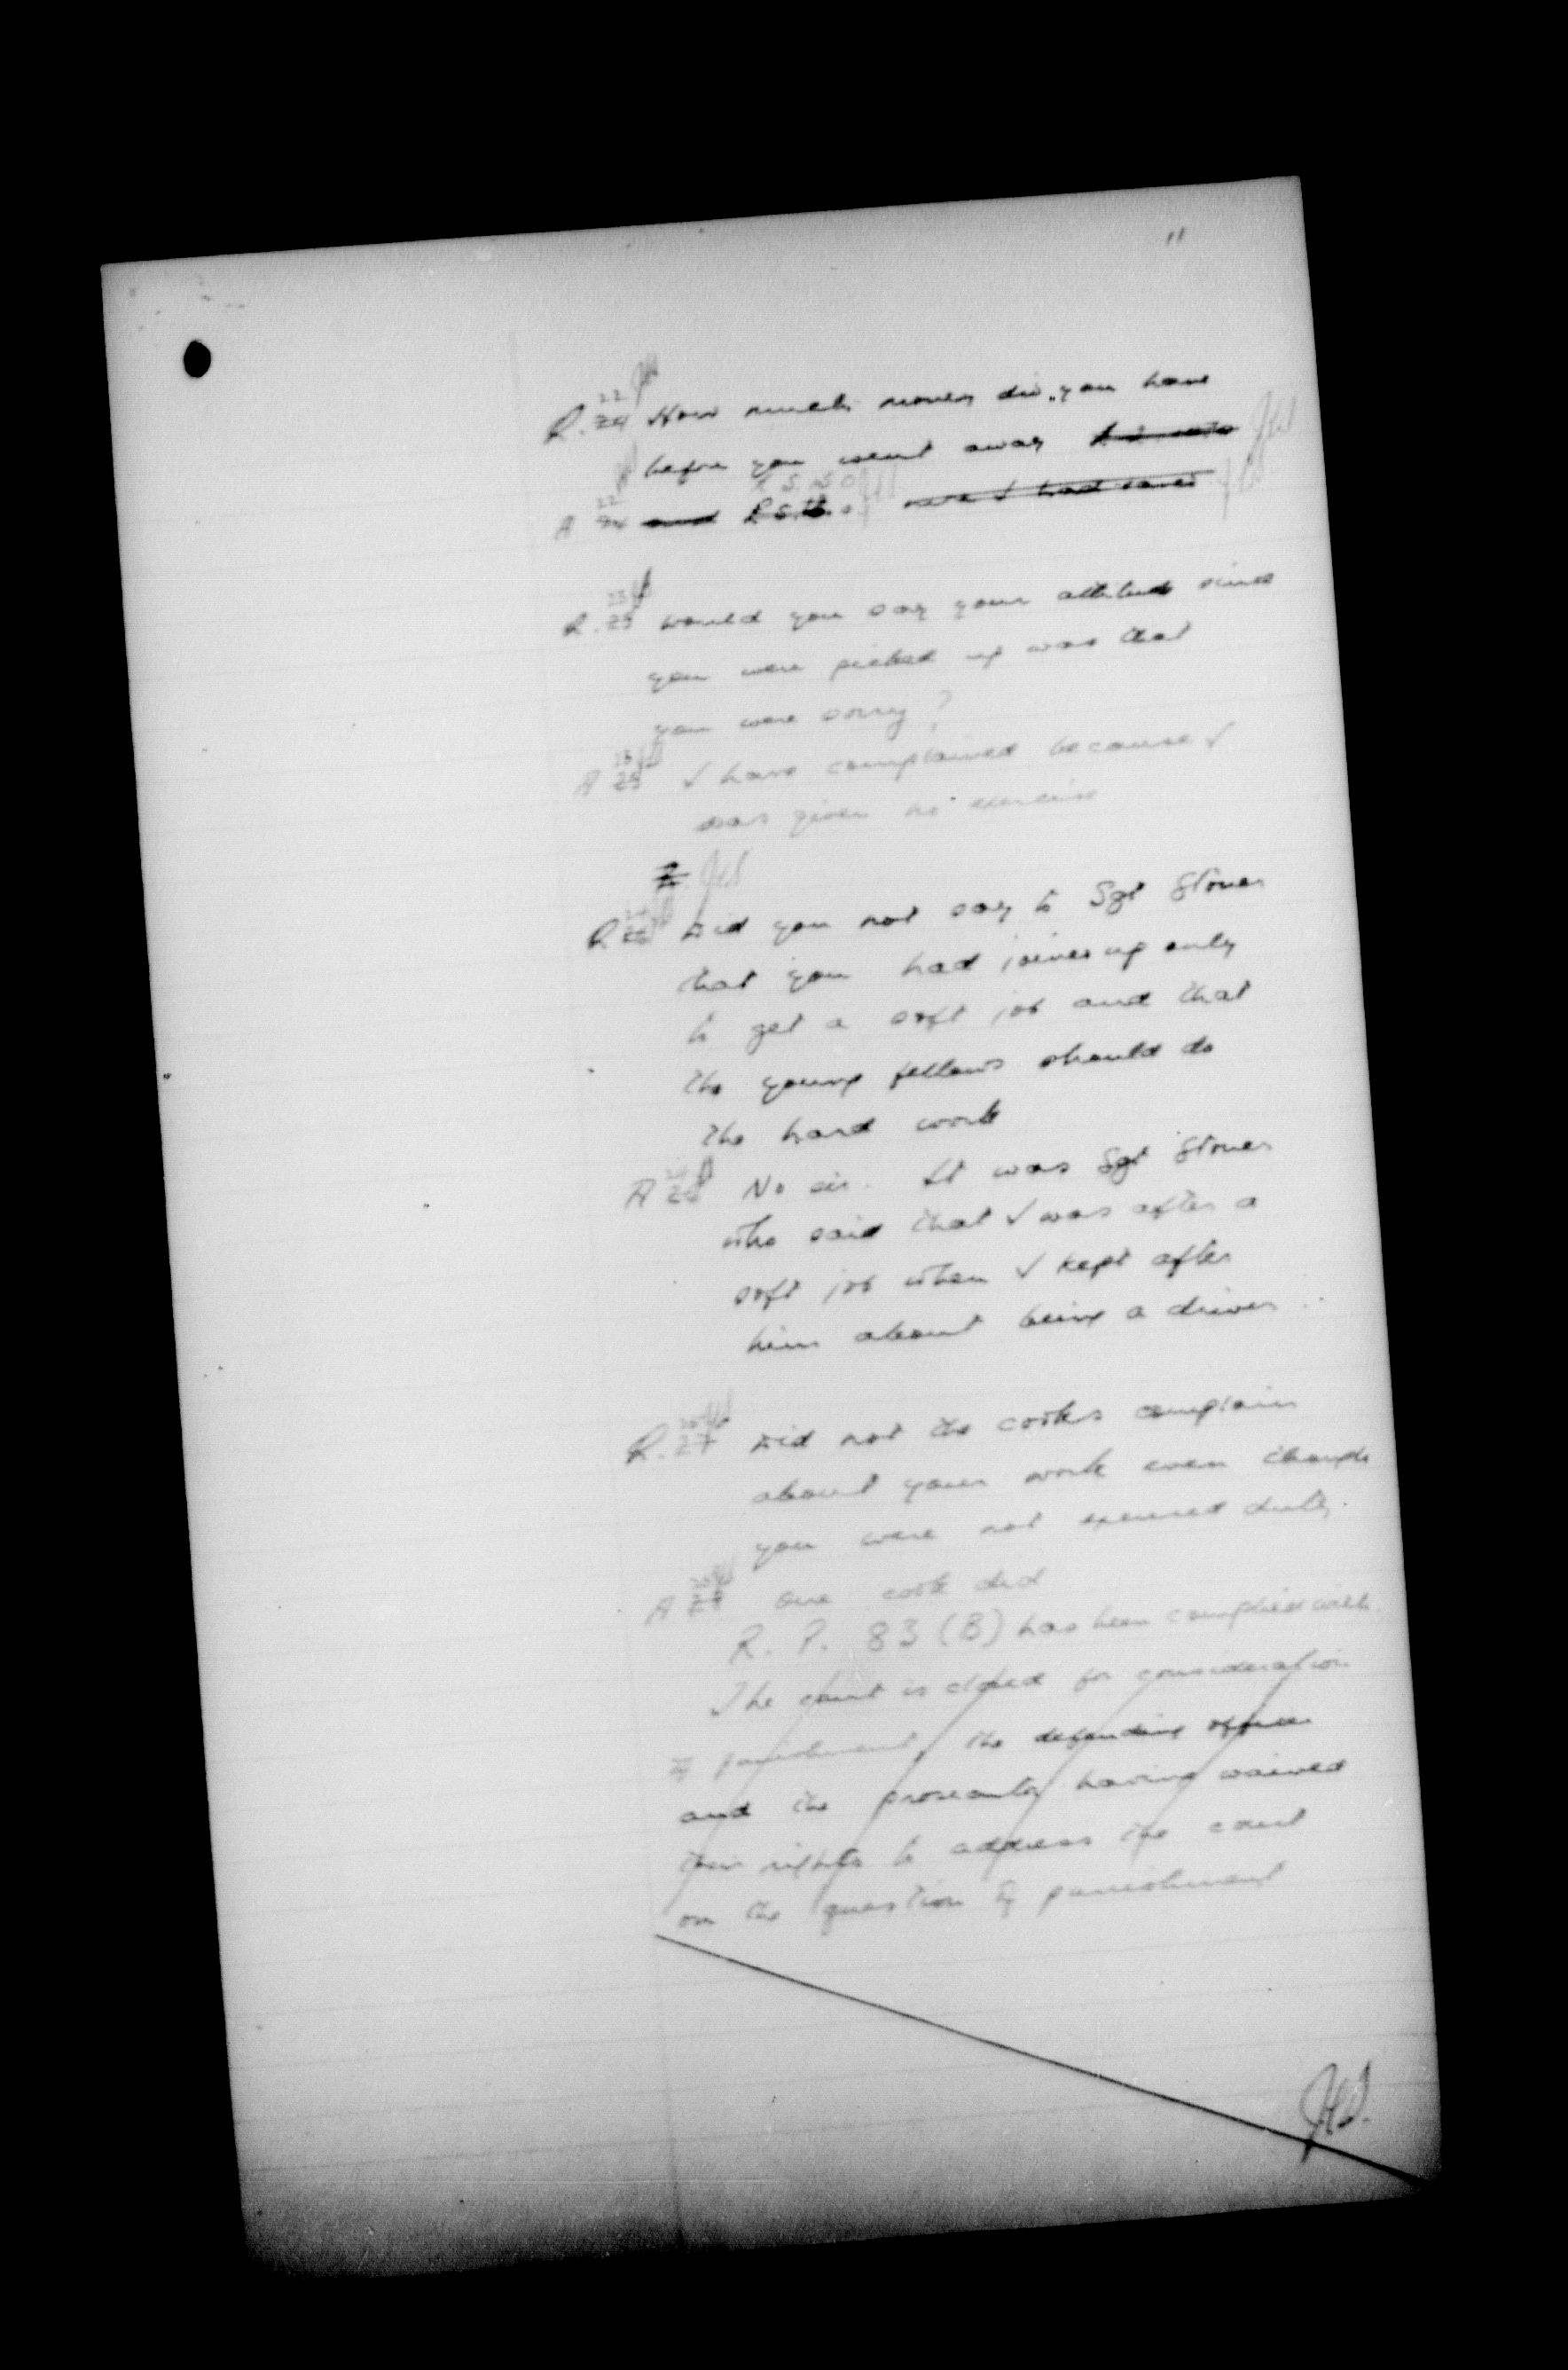 11
Q. 22 24 How much money did you have
before you went away
A 22 24 and £5.10.0 were I had saved
Q. 23 25 Would you say your attitude since
you were picked up was that
you were sorry?
A 23 25 I have complained because I
was given no exercise
JHS
Q 24 26 Did you not say to Sgt Stoner
that you had joined up only
to get a soft job and that
the young fellows should do
the hard work
A 24 26 No sir. It was Sgt Stoner
who said that I was after a
soft job when I kept after
him about being a driver.
Q. 25 27 Did not the cooks complain
about your work even though
you were not excused duty.
A 25 27 One cook did
R. P. 83 (B) has been complied with.
The court is closed for consideration
of punishment, the defending officer
and the prosecutor having waived
their rights to address the court
on the question of punishment
JHS.